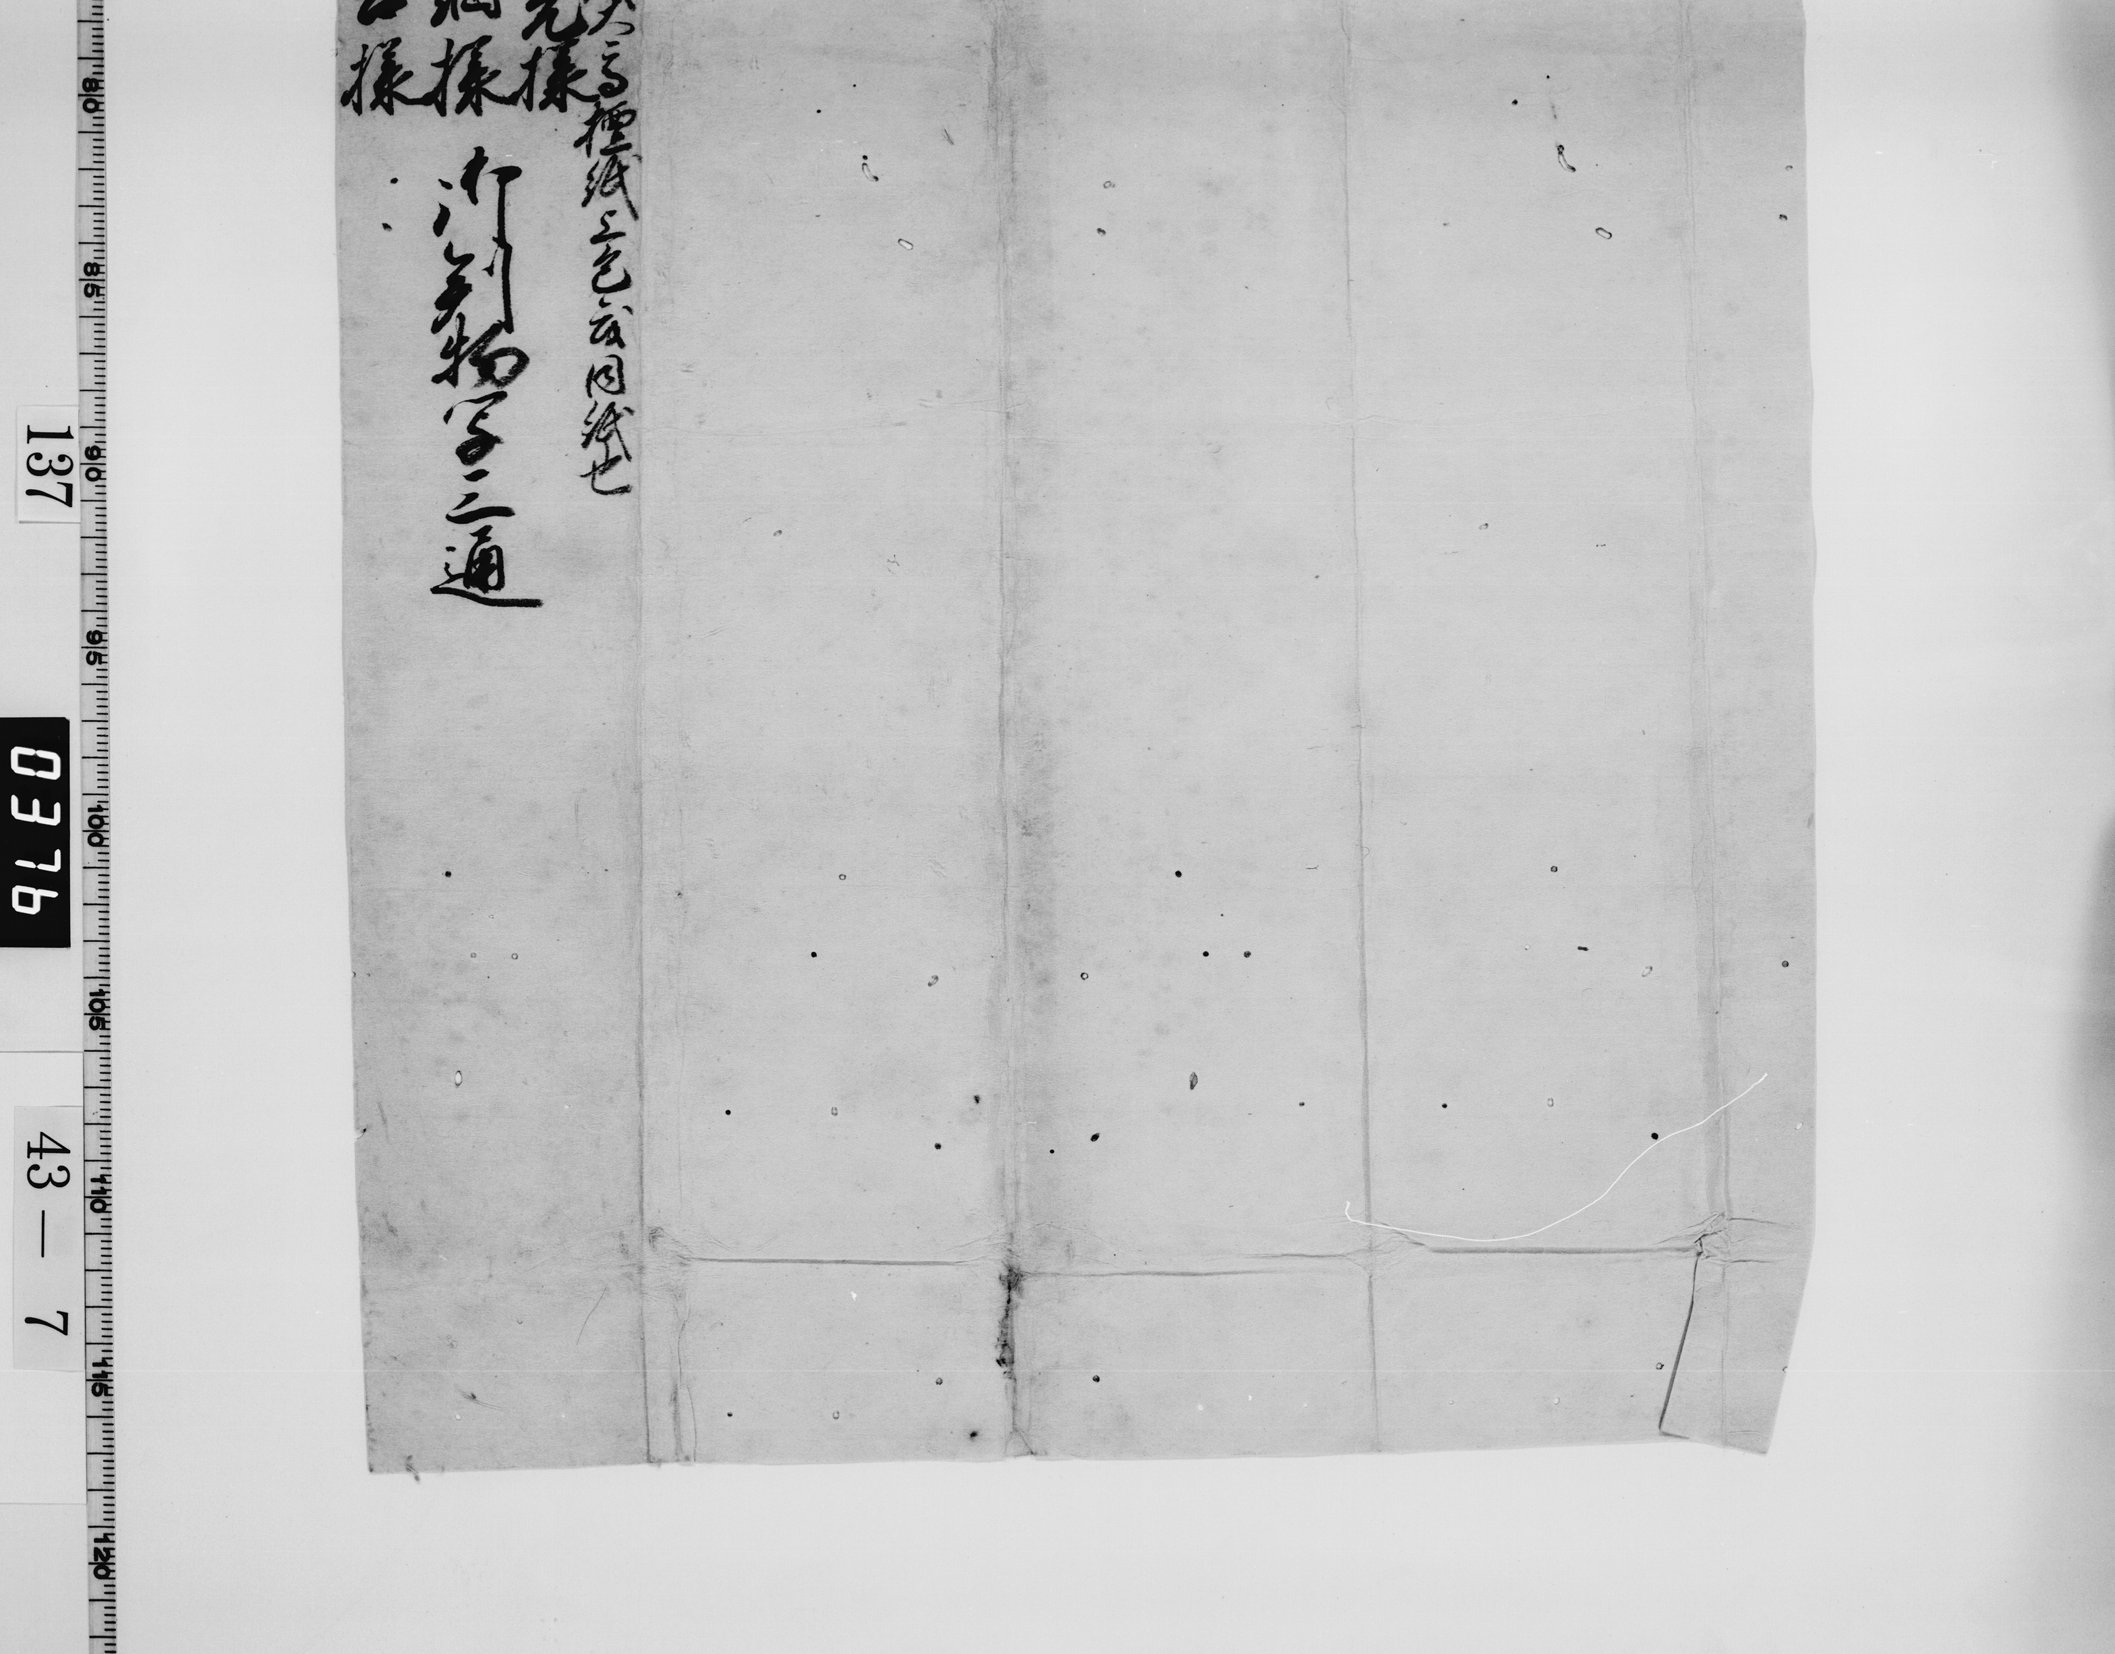 高檀紙上包或同紙也
光様
綱様
様
御判物写三通
137
0376
43－7
80
85
90
95
100
105
110
115
120